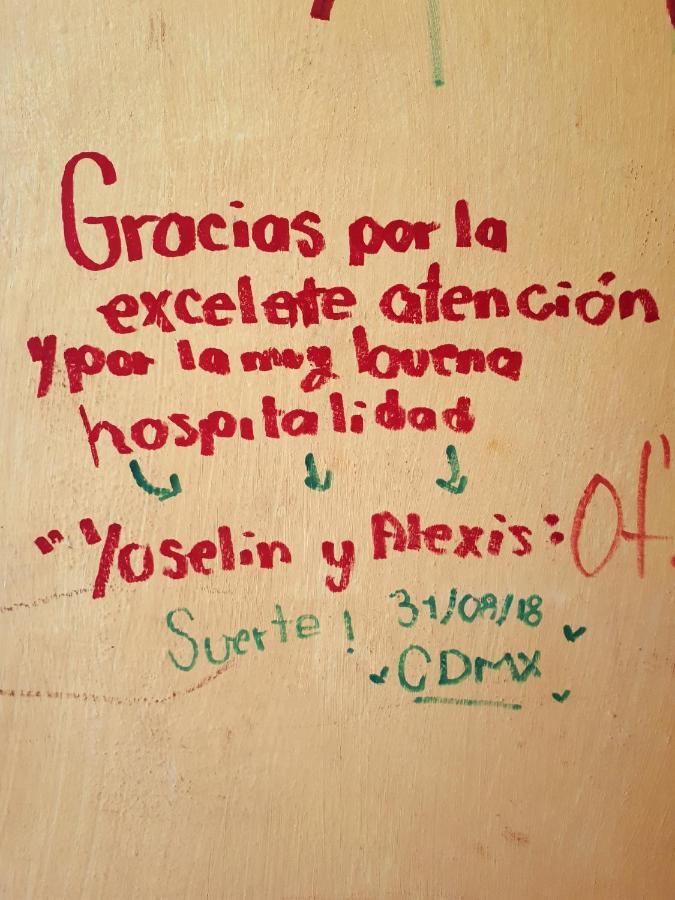 Gracias por la
excelete atención
y por la muy buena
hospitalidad
"Yoselin y Alexis:
Suerte! 31/08/18
CDMX